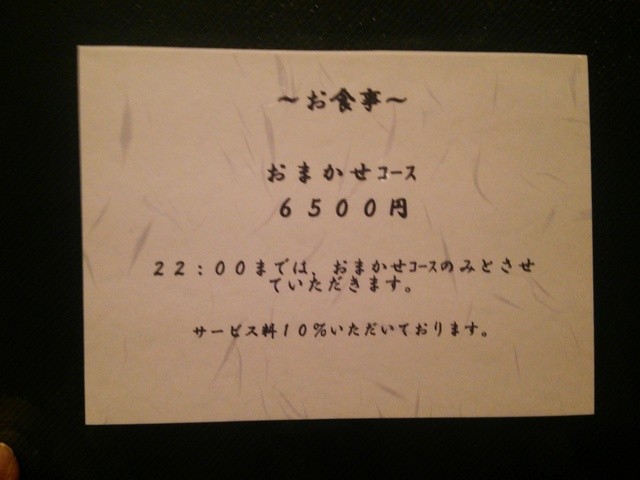 ～お食事～
おまかせｺｰｽ
６５００円
２２：００までは、おまかせｺｰｽのみとさせ
ていただきます。
サービス料１０％いただいております。